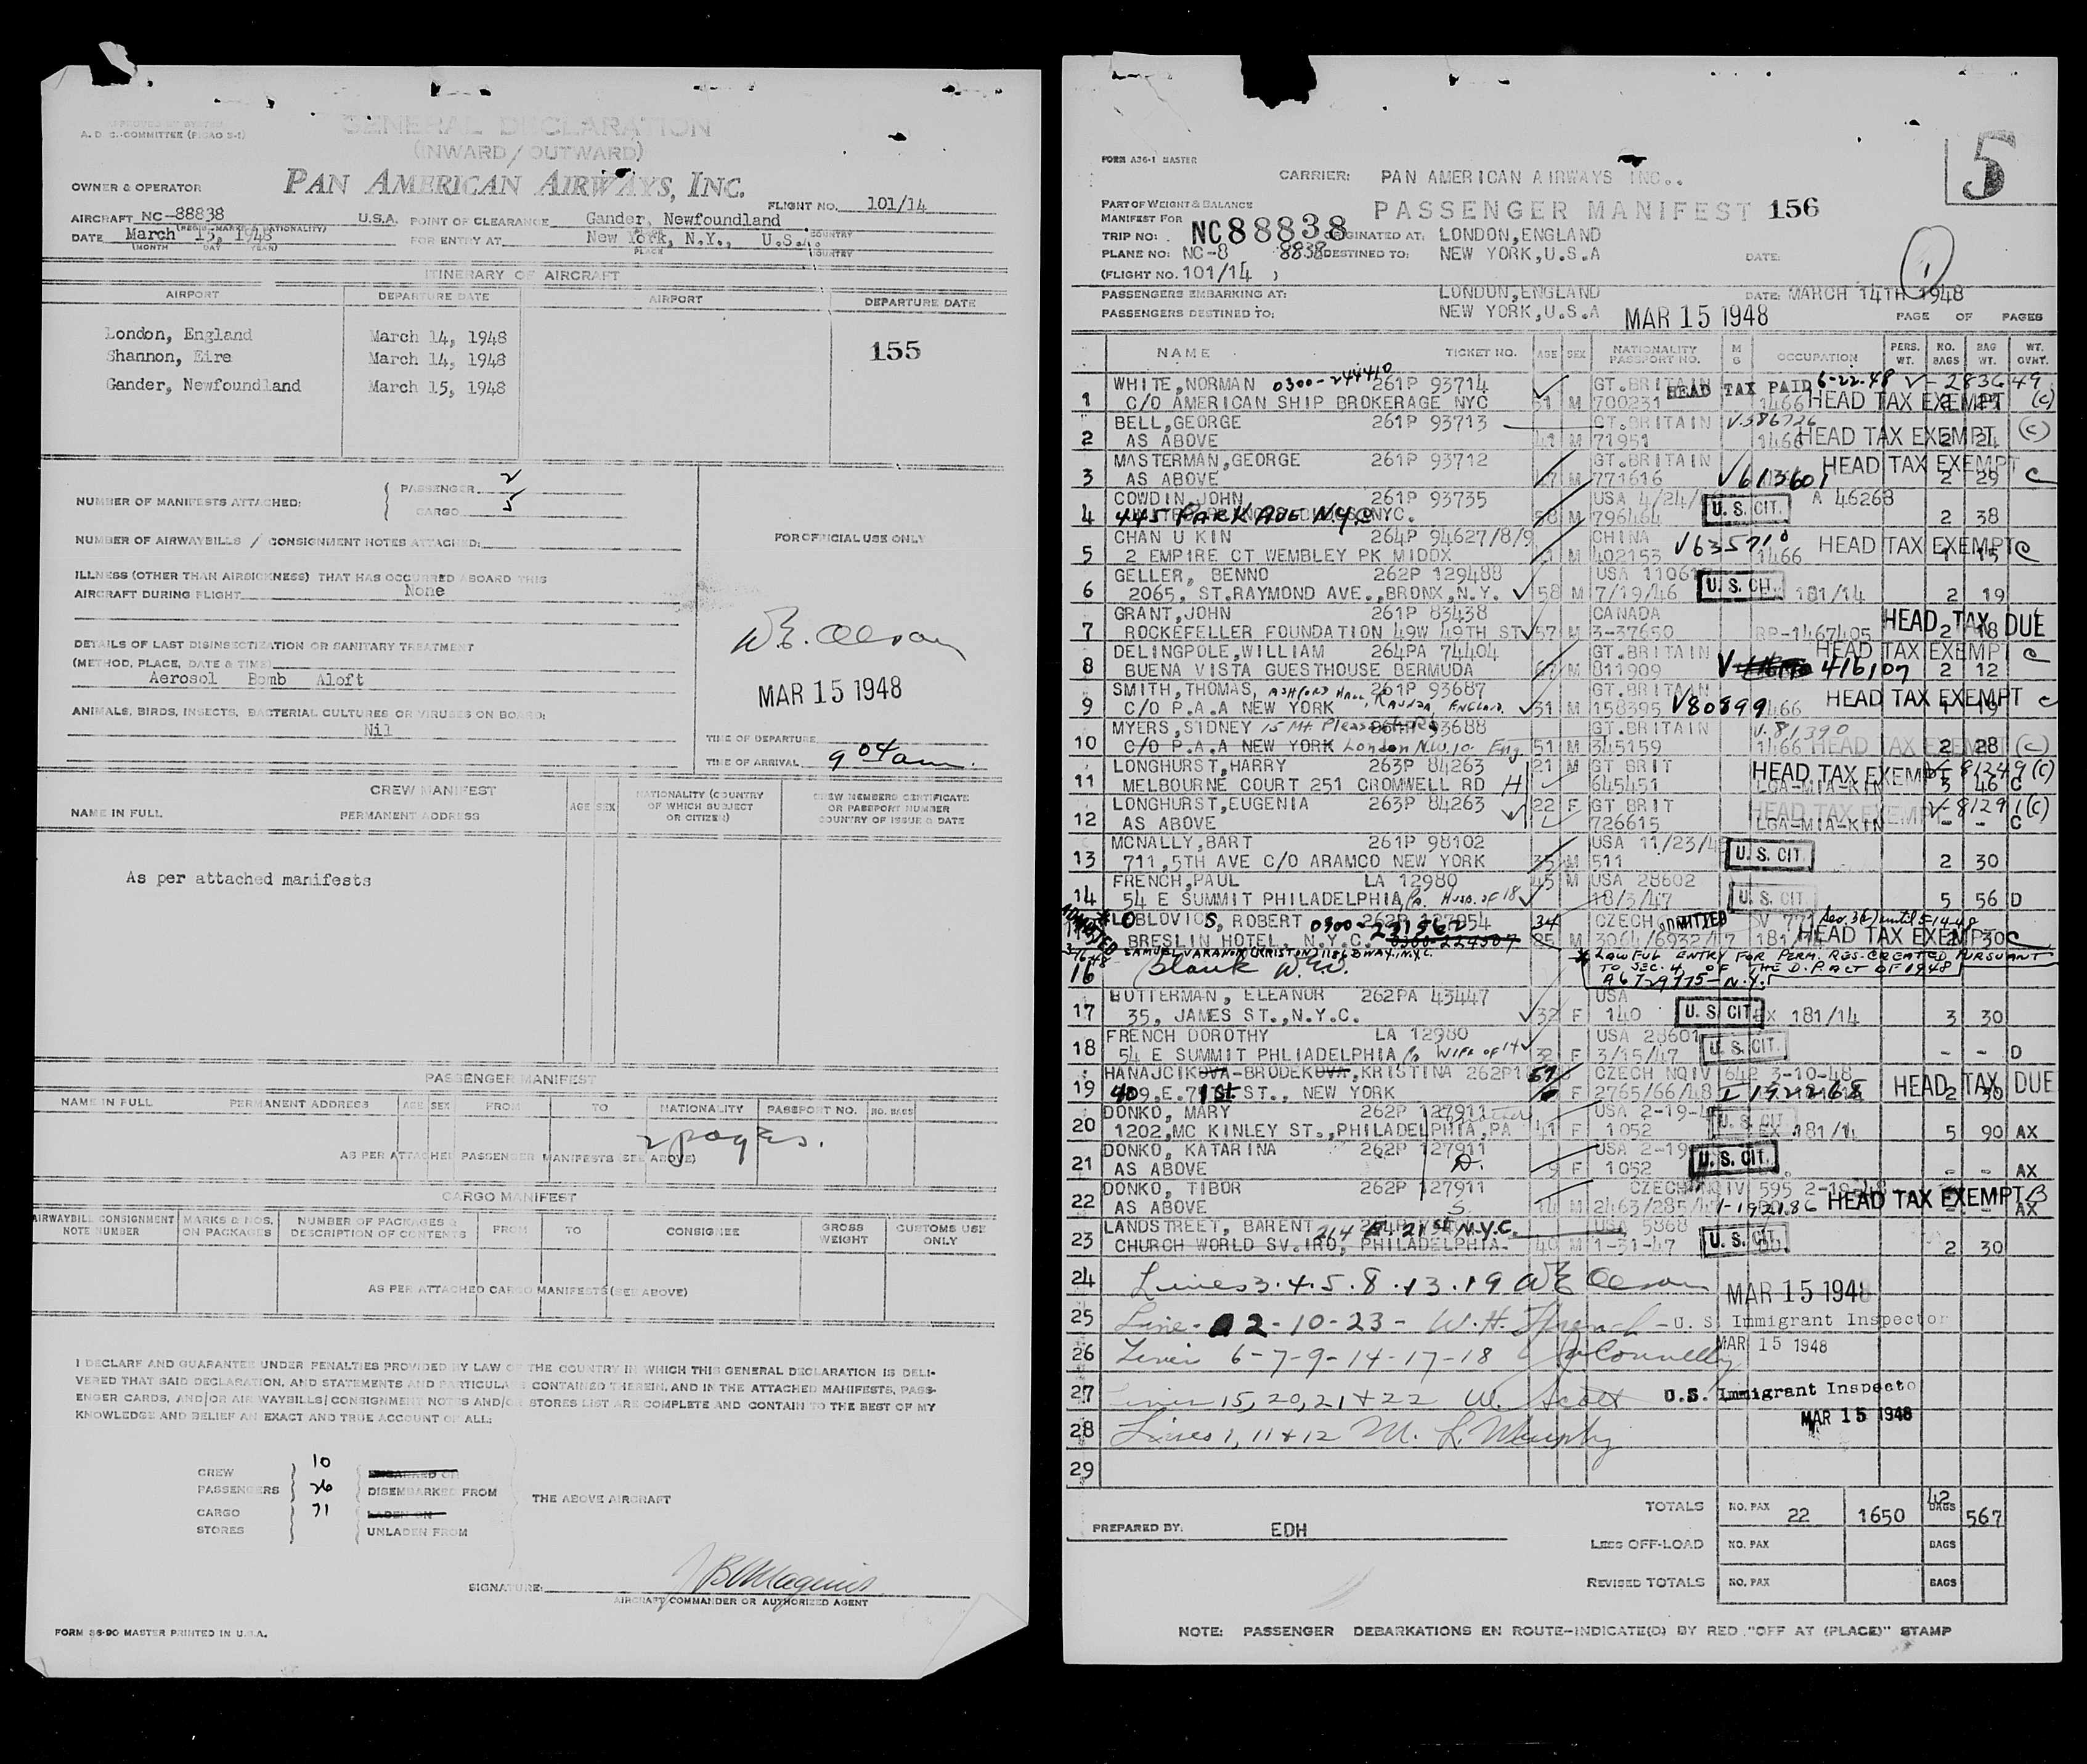 A. D. C.-COMMITTEE (PICAO 3-1)
GENERAL DECLARATION
(INWARD / OUTWARD)
OWNER & OPERATOR
PAN AMERICAN AIRWAYS, INC.
FLIGHT NO. 101/14
AIRCRAFT NC-88838 U.S.A. POINT OF CLEARANCE Gander, Newfoundland
(REGIS. MARKS & NATIONALITY) PLACE COUNTRY
DATE March 15, 1948 FOR ENTRY AT New York, N.Y., U.S.A.
(MONTH DAY YEAR) PLACE COUNTRY
ITINERARY OF AIRCRAFT
AIRPORT DEPARTURE DATE AIRPORT DEPARTURE DATE
London, England March 14, 1948
Shannon, Eire March 14, 1948
155
Gander, Newfoundland March 15, 1948
NUMBER OF MANIFESTS ATTACHED: PASSENGER 2
CARGO 5
NUMBER OF AIRWAYBILLS / CONSIGNMENT NOTES ATTACHED:
FOR OFFICIAL USE ONLY
ILLNESS (OTHER THAN AIRSICKNESS) THAT HAS OCCURRED ABOARD THIS
AIRCRAFT DURING FLIGHT None
DETAILS OF LAST DISINSECTIZATION OR SANITARY TREATMENT
(METHOD, PLACE, DATE & TIME)
Aerosol Bomb Aloft
W.E. Olesou
MAR 15 1948
ANIMALS, BIRDS, INSECTS, BACTERIAL CULTURES OR VIRUSES ON BOARD:
Nil
TIME OF DEPARTURE
TIME OF ARRIVAL 9 04 am.
CREW MANIFEST
NAME IN FULL PERMANENT ADDRESS AGE SEX NATIONALITY (COUNTRY OF WHICH SUBJECT OR CITIZEN) CREW MEMBERS CERTIFICATE OR PASSPORT NUMBER COUNTRY OF ISSUE & DATE
As per attached manifests
PASSENGER MANIFEST
NAME IN FULL PERMANENT ADDRESS AGE SEX FROM TO NATIONALITY PASSPORT NO. NO. BAGS
2 pages.
AS PER ATTACHED PASSENGER MANIFESTS (SEE ABOVE)
CARGO MANIFEST
AIRWAYBILL CONSIGNMENT NOTE NUMBER MARKS & NOS. ON PACKAGES NUMBER OF PACKAGES & DESCRIPTION OF CONTENTS FROM TO CONSIGNEE GROSS WEIGHT CUSTOMS USE ONLY
AS PER ATTACHED CARGO MANIFESTS (SEE ABOVE)
I DECLARE AND GUARANTEE UNDER PENALTIES PROVIDED BY LAW OF THE COUNTRY IN WHICH THIS GENERAL DECLARATION IS DELI-
VERED THAT SAID DECLARATION, AND STATEMENTS AND PARTICULARS CONTAINED THEREIN, AND IN THE ATTACHED MANIFESTS, PASS-
ENGER CARDS, AND/OR AIR WAYBILLS/CONSIGNMENT NOTES AND/OR STORES LIST ARE COMPLETE AND CONTAIN TO THE BEST OF MY
KNOWLEDGE AND BELIEF AN EXACT AND TRUE ACCOUNT OF ALL:
CREW 10 EMBARKED ON
PASSENGERS 26 DISEMBARKED FROM THE ABOVE AIRCRAFT
CARGO 71 LADEN ON
STORES UNLADEN FROM
SIGNATURE:
AIRCRAFT COMMANDER OR AUTHORIZED AGENT
FORM 36-90 MASTER PRINTED IN U.S.A.
FORM A36-1 MASTER
5
CARRIER: PAN AMERICAN AIRWAYS INC..
PART OF WEIGHT & BALANCE
MANIFEST FOR PASSENGER MANIFEST 156
TRIP NO: NC88838 ORIGINATED AT: LONDON,ENGLAND
PLANE NO: NC-8 8838 DESTINED TO: NEW YORK,U.S.A DATE:
(FLIGHT NO. 101/14 ) 1
PASSENGERS EMBARKING AT: LONDON,ENGLAND DATE: MARCH 14TH 1948
PASSENGERS DESTINED TO: NEW YORK,U.S.A MAR 15 1948 PAGE OF PAGES
NAME TICKET NO. AGE SEX NATIONALITY PASSPORT NO. M G OCCUPATION PERS. WT. NO. BAGS BAG WT. WT. GVNT.
WHITE,NORMAN 0300-244410 261P 93714 GT.BRITAIN HEAD TAX PAID 6-22-48 V-283649
1 C/O AMERICAN SHIP BROKERAGE NYC 51 M 700231 1466 HEAD TAX EXEMPT (C)
BELL,GEORGE 261P 93713 GT.BRITAIN V.586726
2 AS ABOVE 41 M 71951 1466 HEAD TAX EXEMPT 2 24 (C)
MASTERMAN,GEORGE 261P 93712 GT.BRITAIN HEAD TAX EXEMPT
3 AS ABOVE 47 M 771616 V613601 2 29 C
COWDIN,JOHN 261P 93735 USA 4/24/ A 46268
4 445 PARK AVE N.Y.C NYC. 58 M 796464 U. S. CIT. 2 38
CHAN U KIN 264P 94627/8/9 CHINA V635710 HEAD TAX EXEMPT
5 2 EMPIRE CT WEMBLEY PK MIDDX 41 M 402153 1466 1 15 C
GELLER, BENNO 262P 129488 USA 11061
6 2065, ST.RAYMOND AVE.,BRONX,N.Y. 58 M 7/19/46 U. S. CIT. 181/14 2 19
GRANT,JOHN 261P 83438 CANADA HEAD TAX DUE
7 ROCKEFELLER FOUNDATION 49W 49TH ST 57 M 3-37650 RP-1467405 2 18
DELINGPOLE,WILLIAM 264PA 74404 GT.BRITAIN HEAD TAX EXEMPT C
8 BUENA VISTA GUESTHOUSE BERMUDA 67 M 811909 V 416107 2 12
SMITH,THOMAS, ASHFORD HALL, RAUNDS, ENGLAND. 261P 93687 GT.BRITAIN HEAD TAX EXEMPT
9 C/O P.A.A NEW YORK 31 M 158395 V80899 1466 1 19 C
MYERS,SIDNEY 15 Mt Pleasant 261P 93688 GT.BRITAIN V.81390
10 C/O P.A.A NEW YORK London N.W.10. Eng. 51 M 345159 1466 HEAD TAX EXEMPT 2 28 (C)
LONGHURST,HARRY 263P 84263 21 M GT BRIT HEAD TAX EXEMPT V-81249(C)
11 MELBOURNE COURT 251 CROMWELL RD H 645451 LGA-MIA-KIN 3 46 C
LONGHURST,EUGENIA 263P 84263 22 F GT BRIT HEAD TAX EXEMPT V-81291(C)
12 AS ABOVE 726615 LGA-MIA-KIN - - C
MCNALLY,BART 261P 98102 USA 11/23/4
13 711,5TH AVE C/O ARAMCO NEW YORK 35 M 511 U. S. CIT. 2 30
FRENCH,PAUL LA 12980 45 M USA 28602
14 54 E SUMMIT PHILADELPHIA Pa. Husb. of 18 18/3/47 U. S. CIT. 5 56 D
LOBLOVICS, ROBERT 0300-231562 262P 127954 34 CZECH ADMITTED V 771 Sec. 3(2) until 5-14-48
BRESLIN HOTEL, N.Y.C. 0300-224507 25 M 3064/6932/47 181/14 HEAD TAX EXEMPT 2 30 C
ADMITTED
16 blank W.W.
* LAWFUL ENTRY FOR PERM. RES. CREATED PURSUANT
TO SEC. 4 OF THE D.P. ACT OF 1948
A6729775-N.Y.
BUTTERMAN, ELEANOR 262PA 43447 USA
17 35, JAMES ST.,N.Y.C. 32 F 140 U. S. CIT. EX 181/14 3 30
FRENCH DOROTHY LA 12980 USA 28601
18 54 E SUMMIT PHLIADELPHIA Pa WIFE of 14 32 F 3/15/47 U. S. CIT. - - D
HANAJCIKOVA-BRODEKOVA,KRISTINA 262P1 57 CZECH NQIV 642 3-10-48
19 409.E.71St ST., NEW YORK F 2765/66/48 I 192268 HEAD TAX DUE 2 30
DONKO, MARY 262P 127911 USA 2-19-4
20 1202,MC KINLEY ST.,PHILADELPHIA,PA 41 F 1052 U. S. CIT. EX 181/14 5 90 AX
DONKO, KATARINA 262P 127911 USA 2-19
21 AS ABOVE D. 9 F 1052 U. S. CIT. - - AX
DONKO, TIBOR 262P 127911 CZECH NQIV 595 2-19-48
22 AS ABOVE S. 14 M 2463/285/4 I-192186 HEAD TAX EXEMPT B AX
LANDSTREET, BARENT 214 E. 21 St. N.Y.C. USA 5868
23 CHURCH WORLD SV. IRO, PHILADELPHIA. 49 M 1-31-47 U. S. CIT. 2 30
24 Lines 3.4.5.8.13.19 WE Olesou MAR 15 1948
25 Line- 2-10-23- W.H. - U. S. Immigrant Inspector
26 Lines 6-7-9-14-17-18 Connelly MAR 15 1948
27 Lines 15,20,21+22 W. Scott U.S. Immigrant Inspecto
28 Lines 1,11+12 M. L. Murphy MAR 15 1948
29
TOTALS NO. PAX 22 1650 42 BAGS 567
PREPARED BY. EDH
LESS OFF-LOAD NO. PAX BAGS
REVISED TOTALS NO. PAX BAGS
NOTE: PASSENGER DEBARKATIONS EN ROUTE-INDICATE(D) BY RED "OFF AT (PLACE)" STAMP